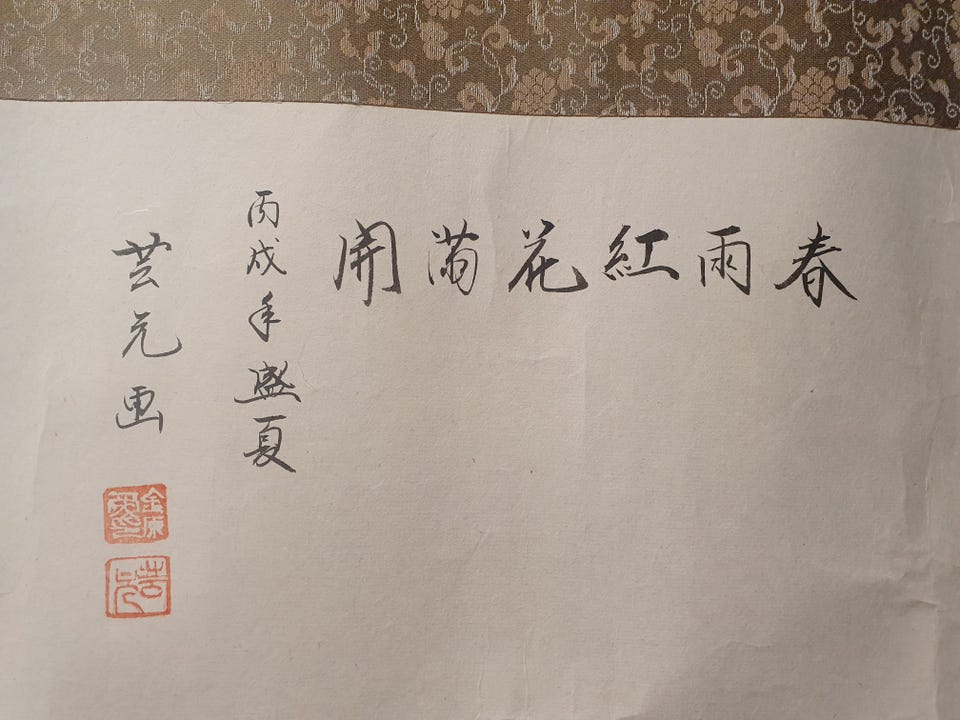 春雨紅花滿開
丙戌年盛夏
芸元画